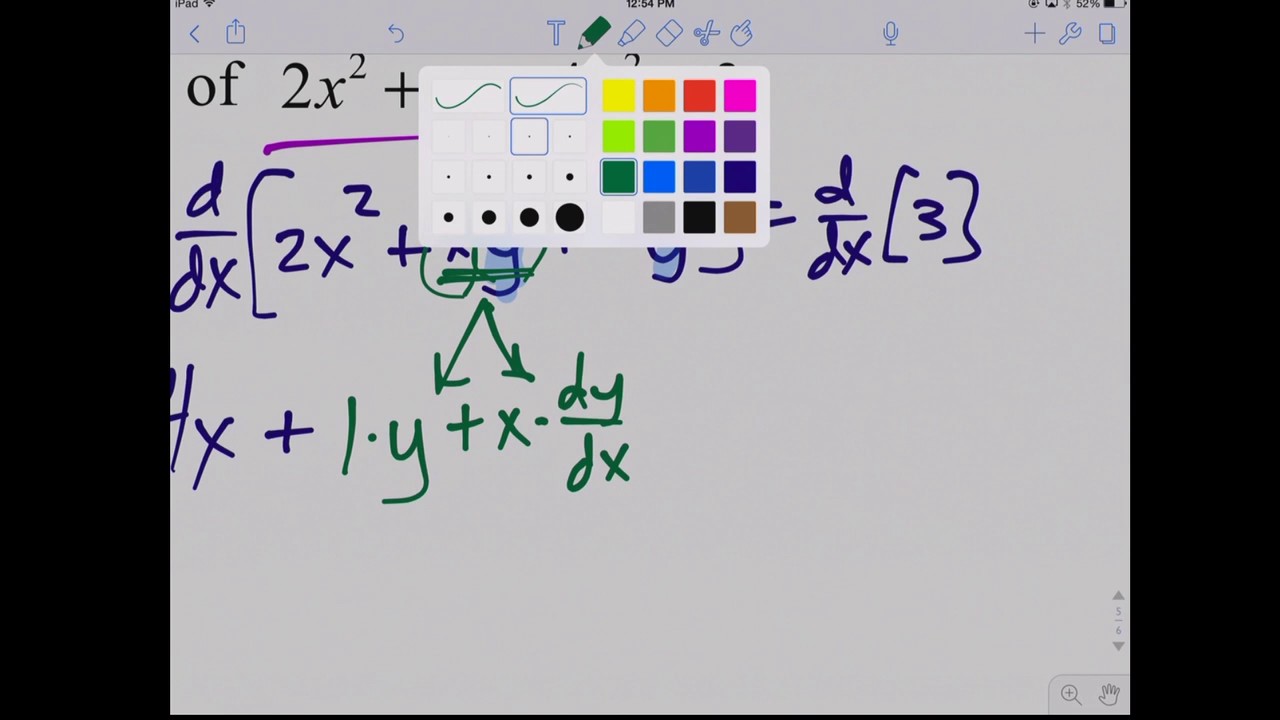 iPad 12:54 PM 52%
T
of 2x² +
d/dx [2x² + xy y] = d/dx [3]
4x + 1·y + x · dy/dx
5
6